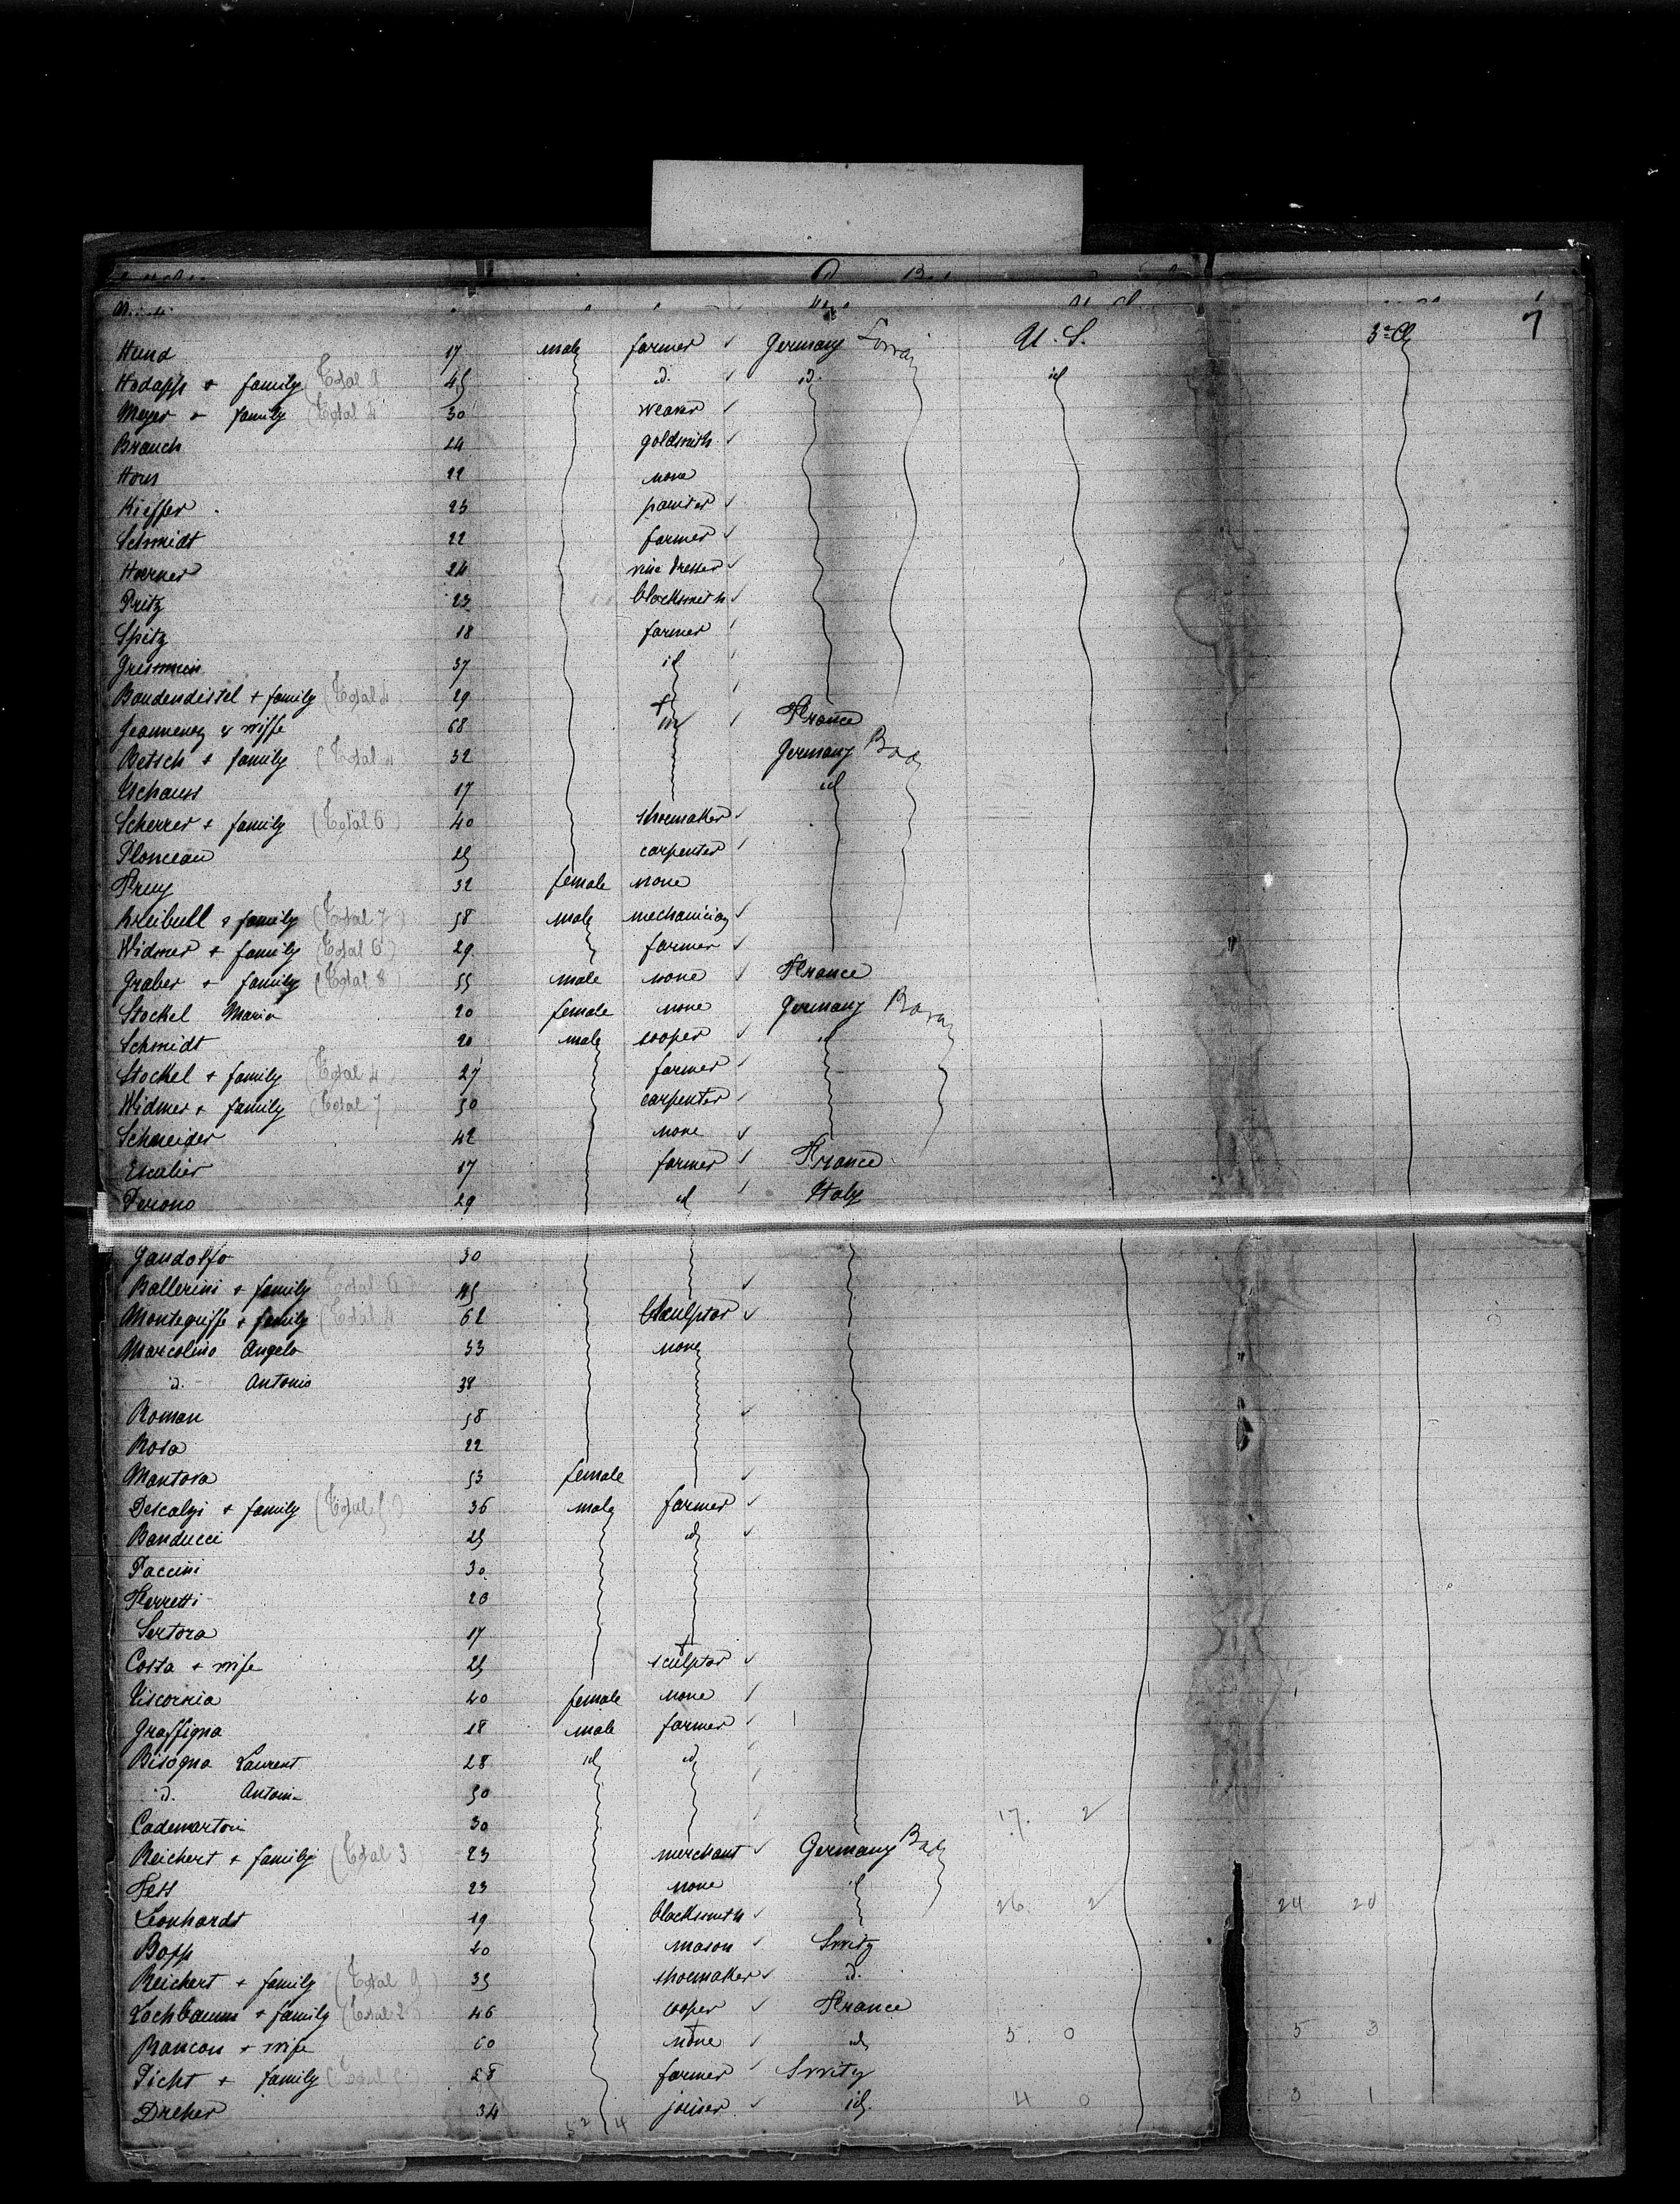 7
Hund 17 male farmer Germany U. S. 3e Cl
Hodapp + family (Total 9 45 id. id. id
Meyer + family (Total 4 30 weaver
Brauch 24 goldsmith
Horn 22 none
Kieffer 23 painter
Schmidt 22 farmer
Hoerner 24 vine dresser
Fritz 23 blacksmith
Spitz 18 farmer
37 id
Baudendistel + family (Total 4) 29
Jeanneney & wiffe 68 France
Betsch + family (Total 4 32 Germany Bad
Uchauss 17 id
Scherrer + family (Total 6) 40 shoemaker
Plonceau 25 carpenter
Frey 32 female none
& family (Total 7) 58 male mechanician
Widmer + family (Total 6) 29 farmer
Graber + family (Total 8 55 male none France
Stockel Maria 20 female none Germany Bavar
Schmidt 20 male cooper id
Stockel + family (Total 4) 27 farmer
Widmer + family (Total 7 50 carpenter
Schneider 42 none
Escalier 17 farmer France
Perono 29 id Italy
Gandolfo 30
Ballerini + family (Total 6) 45
Montegriffe + family (Total 4 62 sculptor
Marcolino Angelo 33 none
id. Antonio 38
Roman 58
Rosa 22
Mantova 53 female
Descalzi + family (Total 36 male farmer
Banducci 25 id
Paccini 30
Ferretti 20
Sertora 17
Costa + wife 25 sculptor
Viscornia 40 female none
Graffigna 18 male farmer
Bisogna Laurent 28 id id
id. Antoin 50
Cademartori 30 17. 2
Reichert + family (Total 3 23 merchant Germany Bad
Fess 23 none id
Leonhardt 19 blacksmith 26. 2 24 20
Bopp 20 mason Switz
Reichert + family (Total 9) 35 shoemaker d.
Lochbaum + family (Total 2) 46 cooper France
Rancon + wife 60 none id 5. 0 5 3
Picht + family 28 farmer Switz
Dreher 34 joiner id. 4 0 3 1
52 4